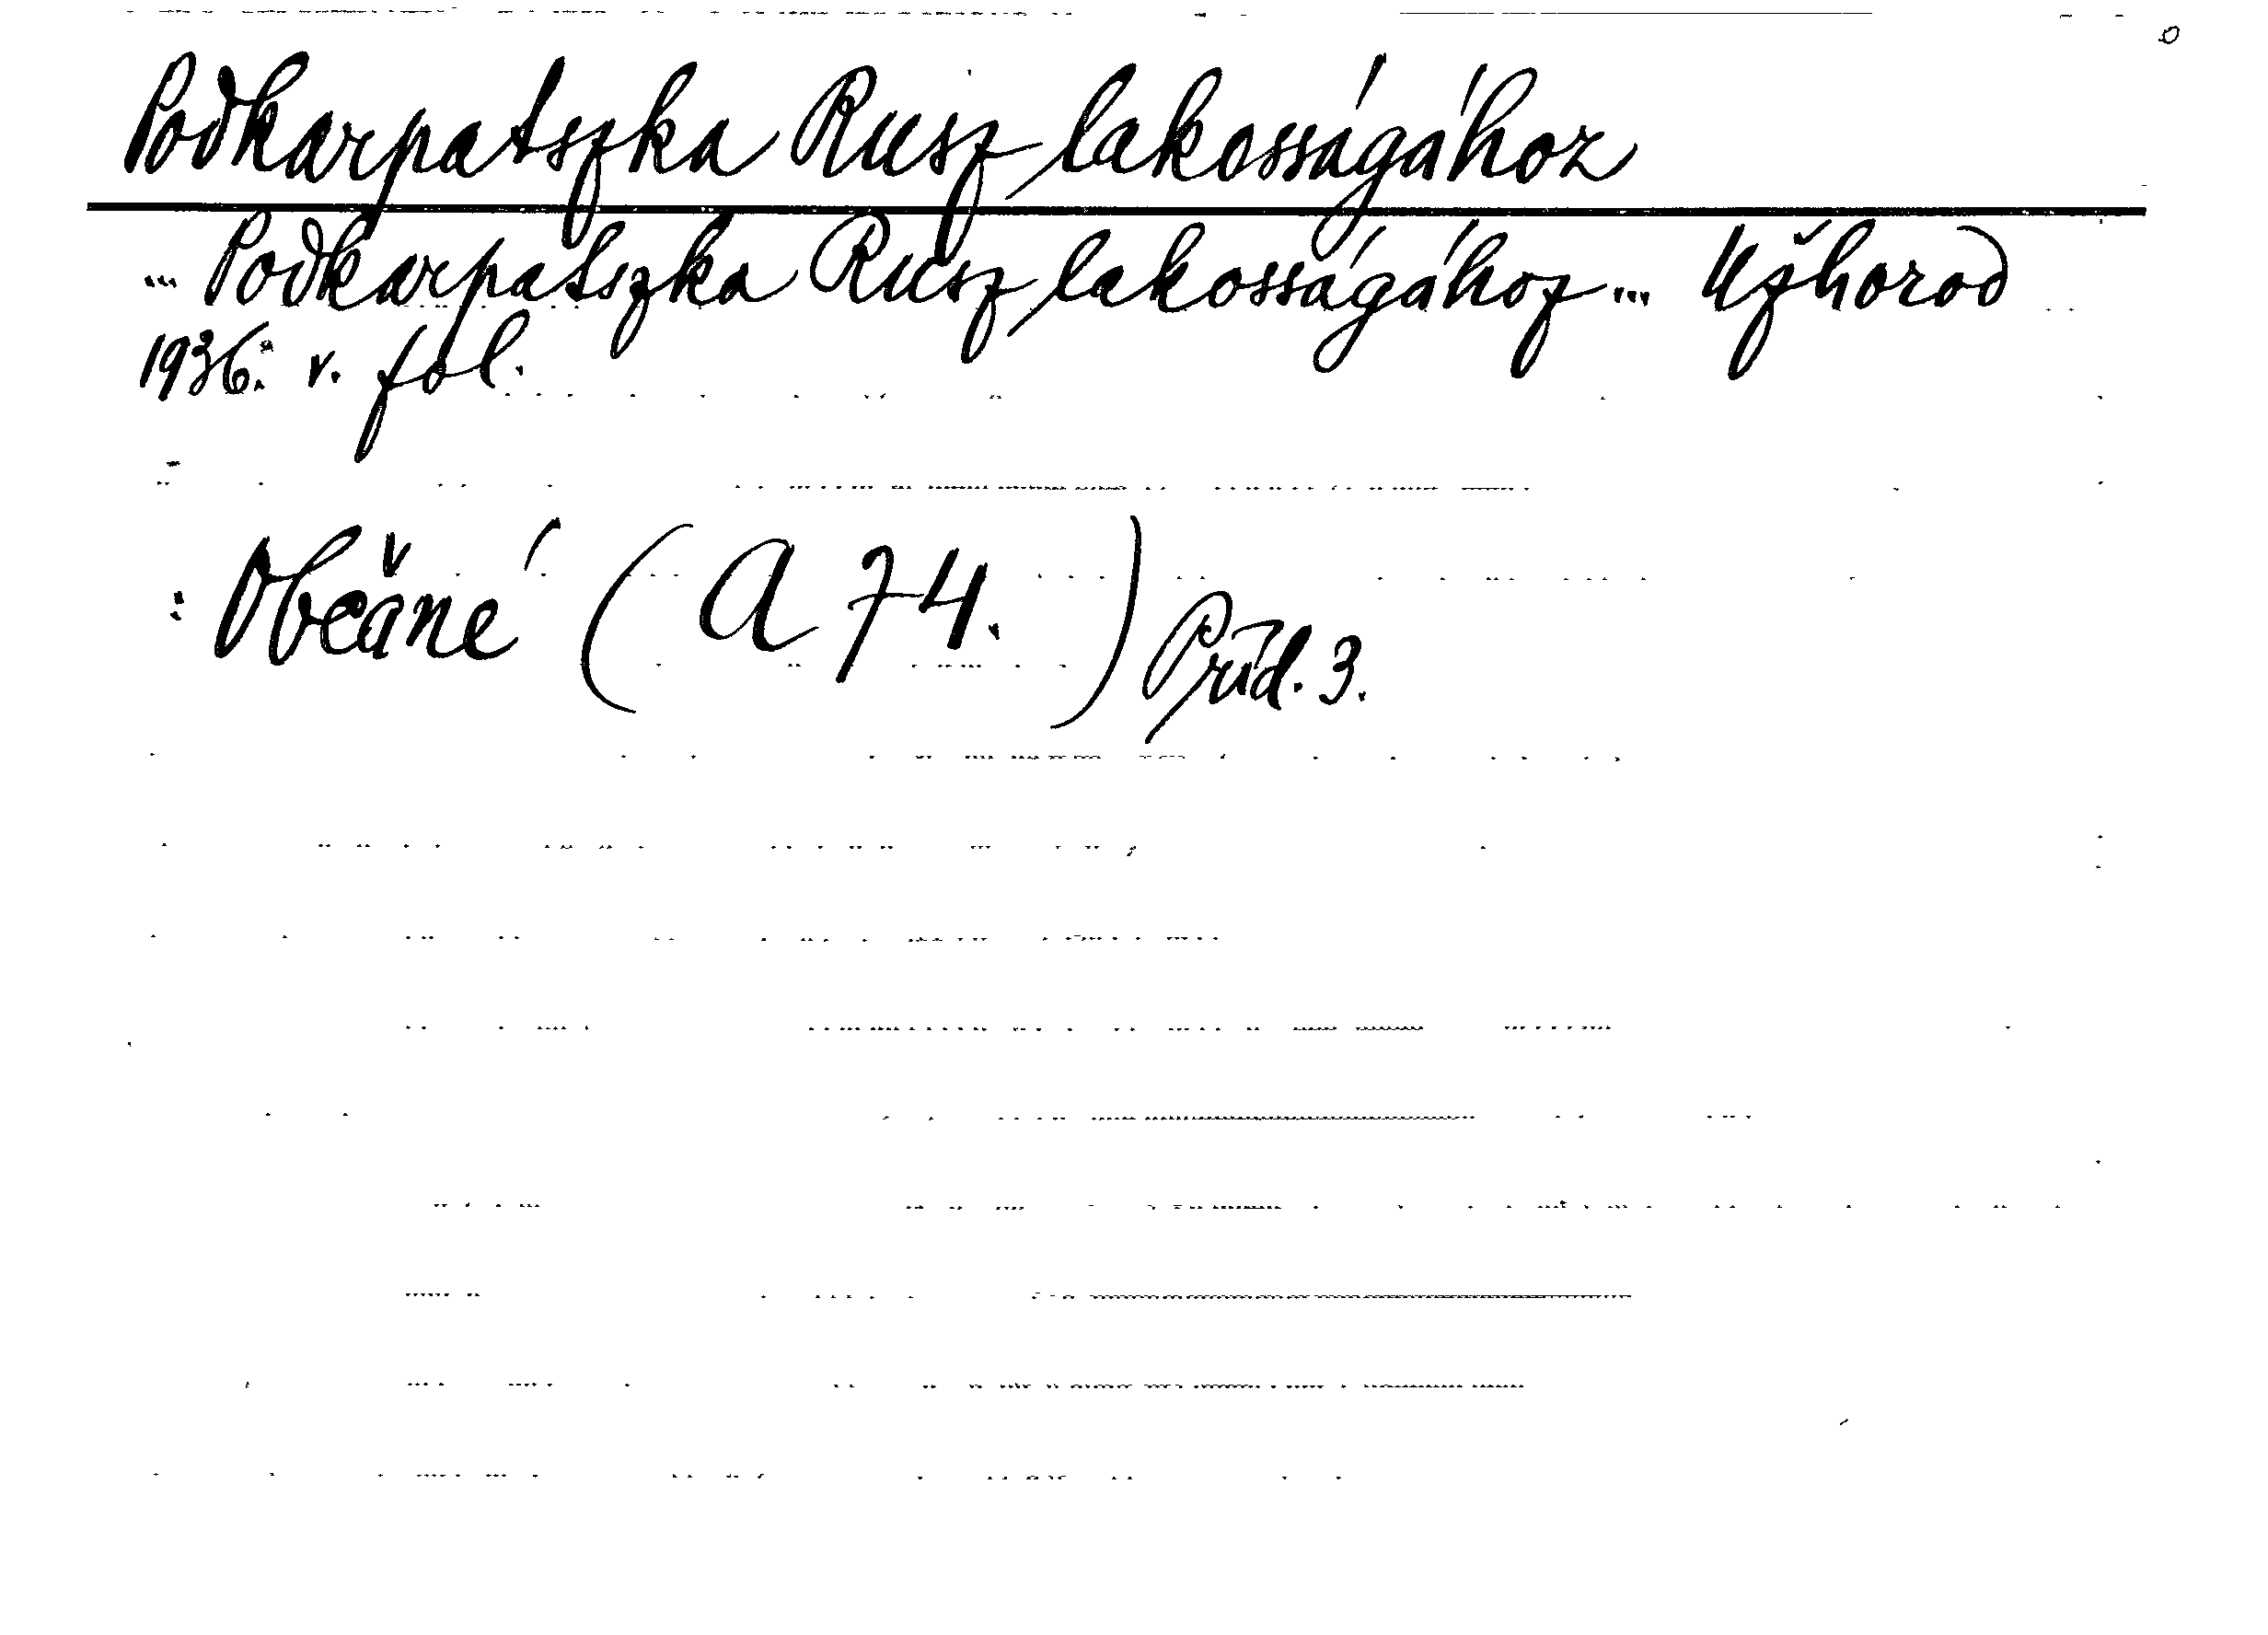 Podkarpatszka Rusz lakosságához
... Podkarpatszka Rusz lakosságához ... Užhorod
1936. v. fol.
: Občané (A 74.) Příd. 3.